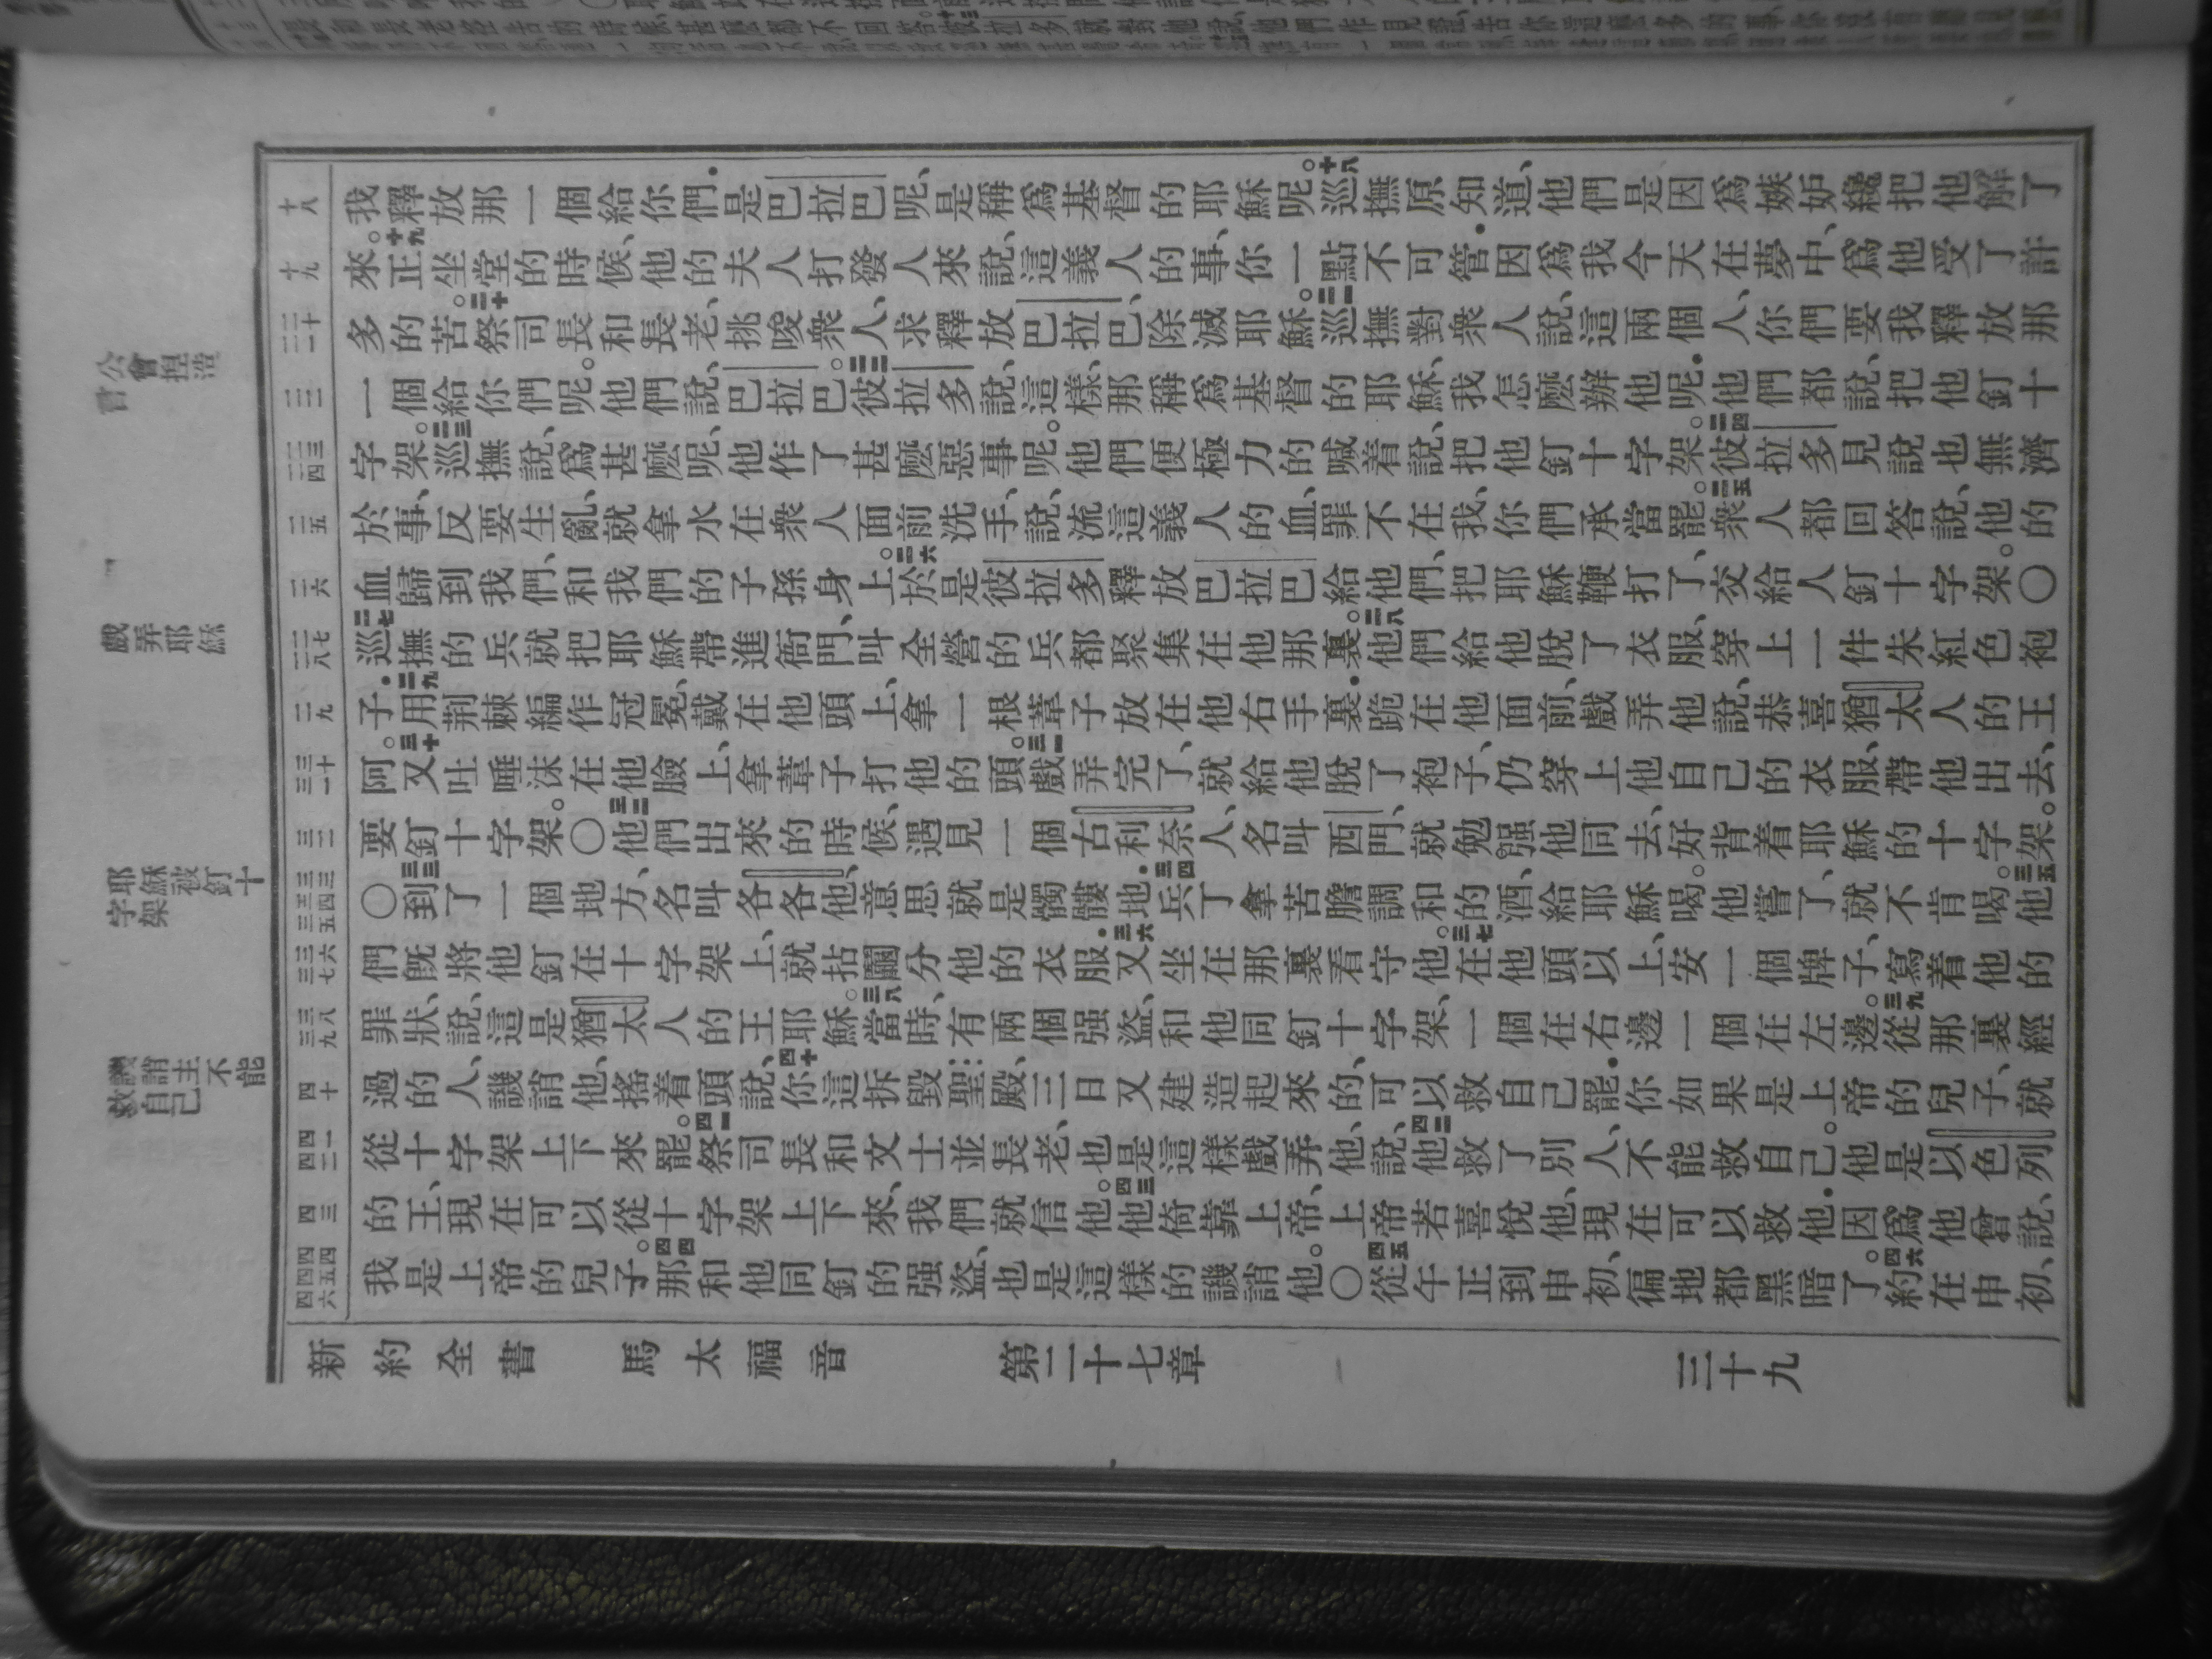 十八
我釋放那一個給你們．是巴拉巴呢、是稱爲基督的耶穌呢。十八巡撫原知道、他們是因爲嫉妒纔把他解了
十九
來。十九正坐堂的時候、他的夫人打發人來說、這義人的事、你一點不可管．因爲我今天在夢中、爲他受了許
二十 二一
多的苦。二十祭司長和長老、挑唆衆人、求釋放巴拉巴、除滅耶穌。二一巡撫對衆人說、這兩個人、你們要我釋放那
二二
一個給你們呢。他們說、巴拉巴。二二彼拉多說、這樣、那稱爲基督的耶穌、我怎麼辦他呢．他們都說、把他釘十
二三 二四
字架。二三巡撫說、爲甚麼呢、他作了甚麼惡事呢。他們便極力的喊着說、把他釘十字架。二四彼拉多見說也無濟
二五
於事、反要生亂、就拿水在衆人面前洗手、說、流這義人的血、罪不在我、你們承當罷。二五衆人都回答說、他的
二六
血歸到我們、和我們的子孫身上。二六於是彼拉多釋放巴拉巴給他們、把耶穌鞭打了、交給人釘十字架。〇
二七 二八
二七巡撫的兵就把耶穌帶進衙門、叫全營的兵都聚集在他那裏。二八他們給他脫了衣服、穿上一件朱紅色袍
二九
子．二九用荆棘編作冠冕、戴在他頭上、拿一根葦子放在他右手裏．跪在他面前、戲弄他說、恭喜猶太人的王
三十 三一
阿。三十又吐唾沫在他臉上、拿葦子打他的頭。三一戲弄完了、就給他脫了袍子、仍穿上他自己的衣服、帶他出去、
三二
要釘十字架。〇三二他們出來的時候、遇見一個古利奈人、名叫西門、就勉强他同去、好背着耶穌的十字架。
三三 三四 三五
〇三三到了一個地方、名叫各各他、意思就是髑髏地．三四兵丁拿苦膽調和的酒、給耶穌喝。他嘗了、就不肯喝。三五他
三六 三七
們既將他釘在十字架上、就拈鬮分他的衣服．三六又坐在那裏看守他。三七在他頭以上、安一個牌子、寫着他的
三八 三九
罪狀、說、這是猶太人的王耶穌。三八當時、有兩個强盜、和他同釘十字架、一個在右邊一個在左邊。三九從那裏經
四十
過的人、譏誚他、搖着頭說、四十你這拆毀聖殿、三日又建造起來的、可以救自己罷．你如果是上帝的兒子、就
四一 四二
從十字架上下來罷。四一祭司長和文士並長老、也是這樣戲弄他、說、四二他救了別人、不能救自己。他是以色列
四三
的王、現在可以從十字架上下來、我們就信他。四三他倚靠上帝、上帝若喜悅他、現在可以救他．因爲他曾說、
四四 四五 四六
我是上帝的兒子。四四那和他同釘的强盜、也是這樣的譏誚他。〇四五從午正到申初、徧地都黑暗了。四六約在申初、
公會捏造
戲弄耶穌
耶穌被釘十
字架
譏誚主不能
救自己
新約全書　馬太福音　第二十七章　三十九